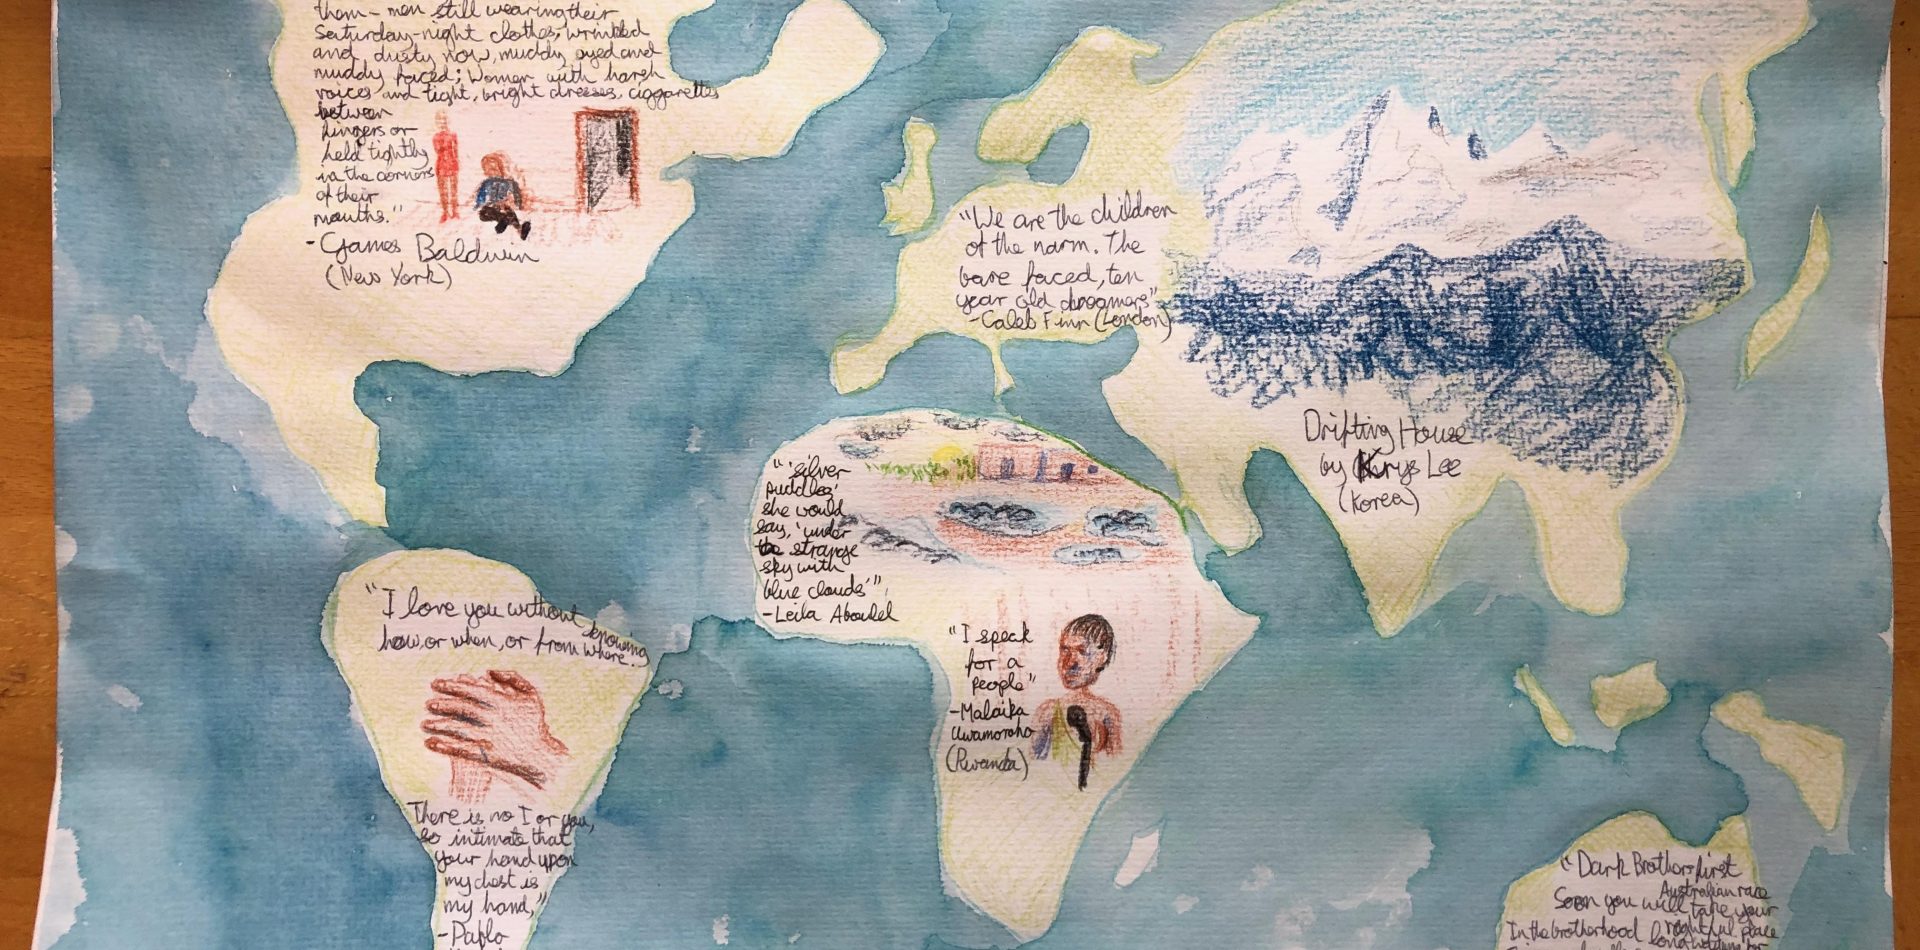 them - men still wearing their
Saturday-night clothes, wrinkled
and dusty now, muddy eyed and
muddy faced; women with harsh
voices and tight, bright dresses, ciggarettes
between
fingers or
held tightly
in the corners
of their
mouths."
- James Baldwin
(New York)
"We are the children
of the norm. The
bare faced, ten
year old dreamers"
- Caleb Finn (London)
Drifting House
by Krys Lee
(Korea)
"'silver
puddles'
she would
say, 'under
the strange
sky with
blue clouds'"
- Leila Aboulel
"I speak
for a
people"
- Malaika
Uwamoroho
(Rwanda)
"I love you without knowing
how, or when, or from where.
There is no I or you,
so intimate that
your hand upon
my chest is
my hand,"
- Pablo
"Dark Brothers first
Australian race
Soon you will take your
rightful place
In the brotherhood long waited for